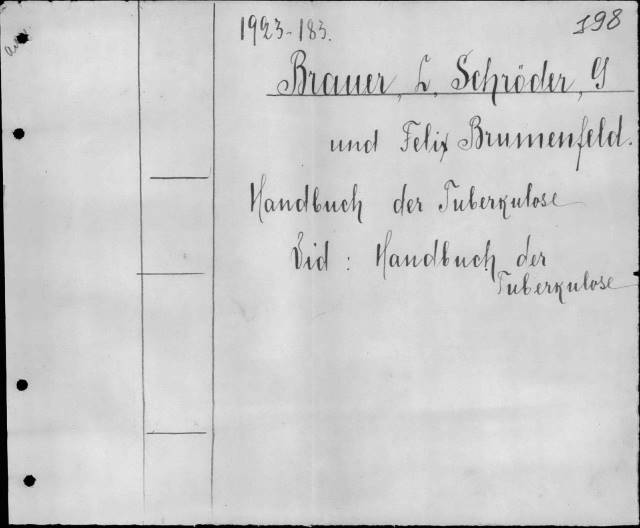 1923-183.
198
Brauer, L, Schröder, G
und Felix Brumenfeld.
Handbuch der Tuberkulose
Vid : Handbuch der
Tuberkulose